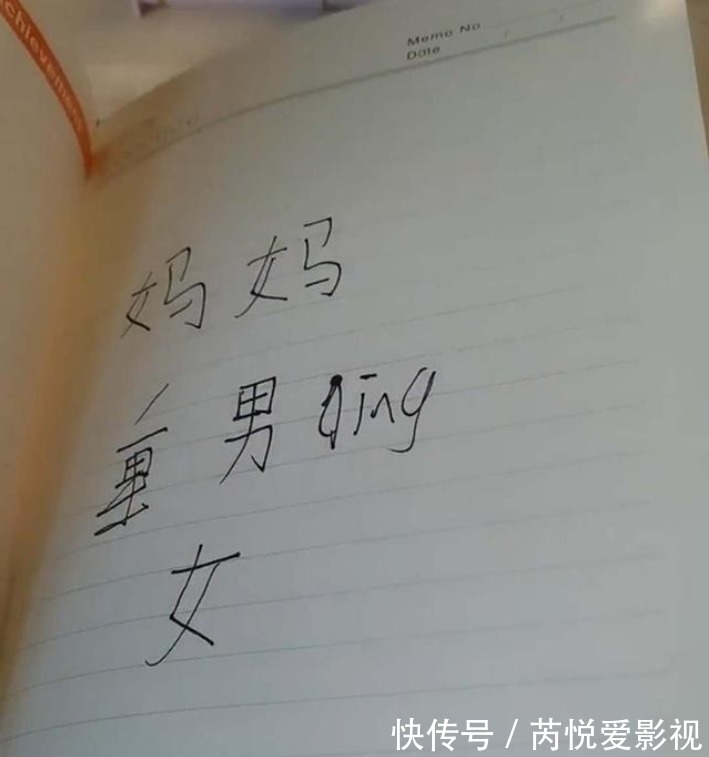 chievement
Memo No
Date
妈妈
重男qing
女
快传号 / 芮悦爱影视